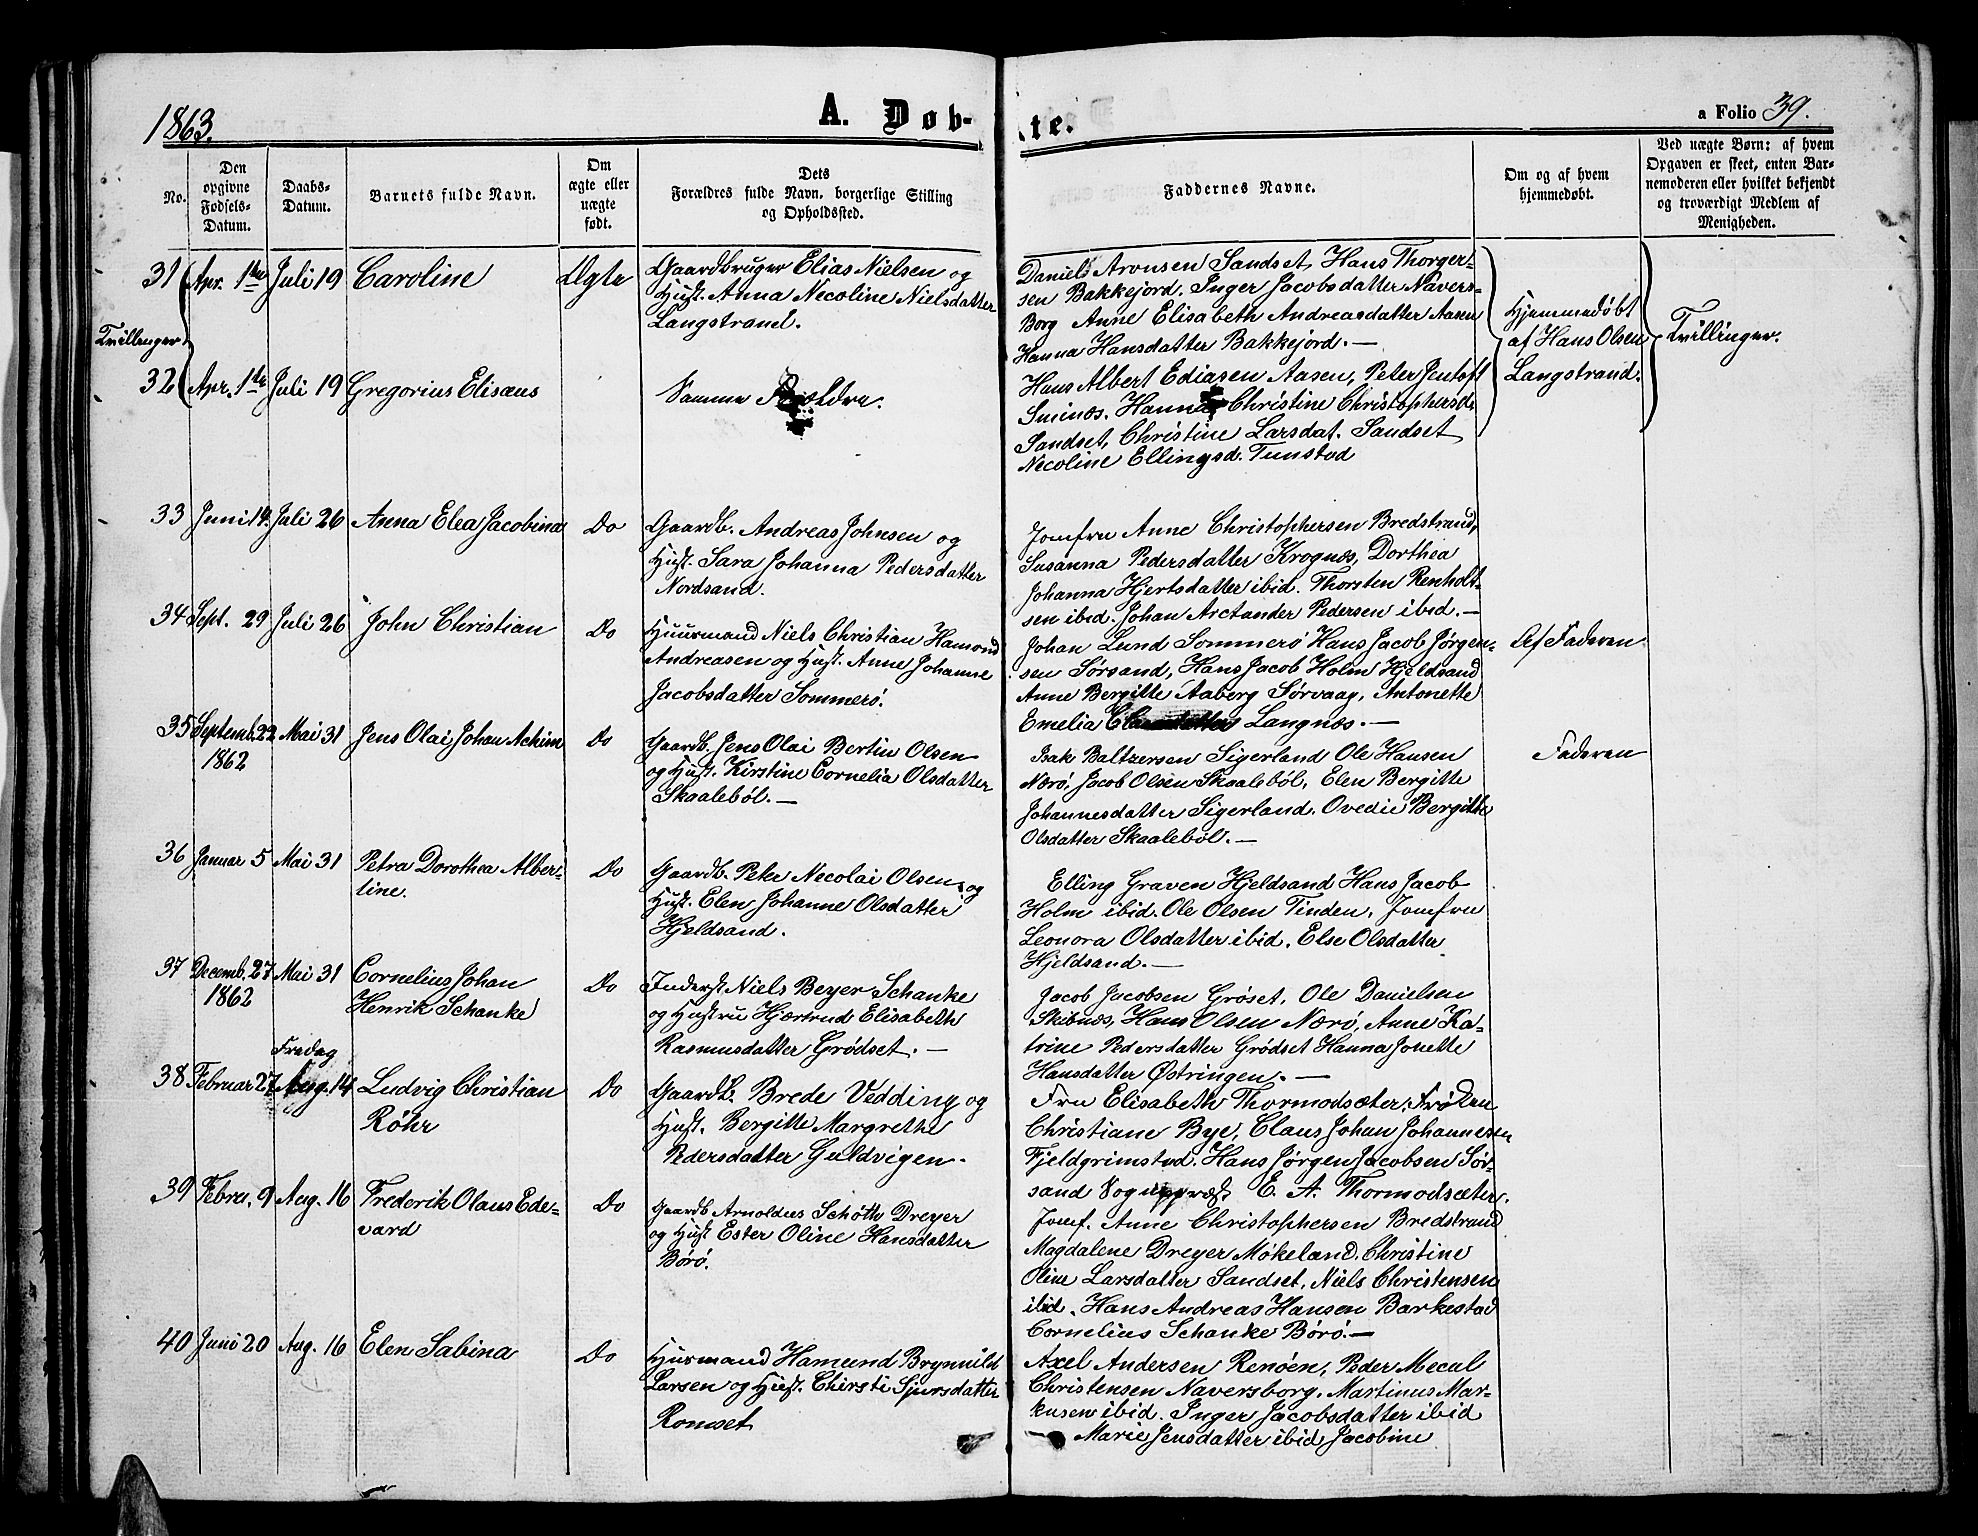 1863.
A. Døb-
te.
a Folio 39.
No.
Den
opgivne
Fødsels-
Datum.
Daabs-
Datum.
Barnets fulde Navn.
Om
ægte eller
uægte
født.
Dets
Forældres fulde Navn, borgerlige Stilling
og Opholdssted.
Faddernes Navne.
Om og af hvem
hjemmedøbt.
Ved uægte Børn: af hvem
Opgaven er skeet, enten Bar-
nemoderen eller hvilket bekjendt
og troværdigt Medlem af
Menigheden.
Tvillinger
31 Apr. 1ste Juli 19 Caroline Ægte
Gaardbruger Elias Nielsen og
Hust. Anna Necoline Nielsdatter
Langstrand.
Daniel Aronsen Sandset, Hans Thorger-
sen Bakkejord. Inger Jacobsdatter Navers-
Borg Anne Elisabeth Andreasdatter Aasen
Hanna Hansdatter Bakkejord.—
Hjemmedøbt
af Hans Olsen
Langstrand.
Tvillinger.
32 Apr. 1ste Juli 19 Gregorius Elisæus
Samme Forældre.
Hans Albert Ediasen Aasen, Peter Jentoft
Smines. Hanna Christine Christophersd.
Sandset, Christine Larsdat. Sandset
Necoline Ellingsd. Tunstad
33 Juni 19. Juli 26 Anna Elea Jacobina Do
Gaardb. Andreas Johnsen og
Hust. Sara Johanna Pedersdatter
Nordsand.
Jomfru Anne Christophersen Bredstrand,
Susanna Pedersdatter Krognæs, Dorthea
Johanna Hjertsdatter ibid. Thorsten Renholt-
sen ibid. Johan Arctander Pedersen ibid.—
34 Sept. 29 Juli 26 John Christian Do
Huurmand Niels Christian Hamond
Andreasen og Hust. Anne Johanne
Jacobsdatter Sommerø.
Johan Lund Sommerø Hans Jacob Jørgen-
sen Sørsand, Hans Jacob Holm Hjeldsand
Anne Bergitte Aaberg Sørvaag, Antonette
Emelia Langnæs.—
Af Faderen
35 Septemb. 22 Mai 31 Jens Olai Johan Achim Do
1862
Gaardb. Jens Olai Bertin Olsen
og Hust. Kirstine Cornelia Olsdatter
Skaalebøl.—
Isak Baltzersen Sigerland Ole Hansen
Nærø, Jacob Olsen Skaalebøl, Elen Bergitte
Johannesdatter Sigerland. Ovedie Bergitte
Olsdatter Skaalebøl.—
Faderen
36 Januar 5 Mai 31 Petra Dorothea Alber-
tine. Do
Gaardb. Peter Necolai Olsen og
Hust. Elen Johanne Olsdatter
Hjeldsand.
Elling Graven Hjeldsand Hans Jacob
Holm ibid. Ole Olsen Tinden, Jomfru
Leonora Olsdatter ibid. Else Olsdatter
Hjeldsand.—
37 Decemb. 27 Mai 31 Cornelius Johan
1862 Henrik Schanke Do
Inderst Niels Beyer Schanke
og Hustru Hjærtrud Elisabeth
Rasmusdatter Grødset.—
Jacob Jacobsen Grøset, Ole Danielsen
Skibnæs, Hans Olsen Nærø, Anne Ka-
trine Pedersdatter Grødset Hanna Jonette
Hansdatter Østringen.—
Fredag
38 Februar 27 Aug. 14 Ludvig Christian
Røhr Do
Gaardb. Brede Vedding og
Hust. Bergitte Margrethe
Pedersdatter Guldvigen.
Fru Elisabeth Thormodsæter, Frøken
Christiane Bye, Claus Johan Johannessen
Fjeldgrimstad. Hans Jørgen Jacobsen Sør-
sand Sognepræst E. A. Thormodsæter.
39 Febru. 9 Aug. 16 Frederik Olaus Ede-
vard Do
Gaardb Arnoldus Schøtte Dreyer
og Hust Ester Oline Hansdatter
Børø.
Jomf. Anne Christophersen Bredstrand
Magdalene Dreyer Møkeland. Christine
Oline Larsdatter Sandset, Niels Christensen
ibid. Hans Andreas Hansen Barkestad
Cornelius Schanke Børø.—
40 Juni 20 Aug. 16 Elen Sabina Do
Huurmand Hamund Brynnild
Larsen og Hust. Chirsti Sjursdatter
Romset
Axel Andersen Renøen, Peder Mecal
Christensen Naversborg. Martinus Mar-
kusen ibid. Inger Jacobsdatter ibid
Marie Jensdatter ibid Jacobine